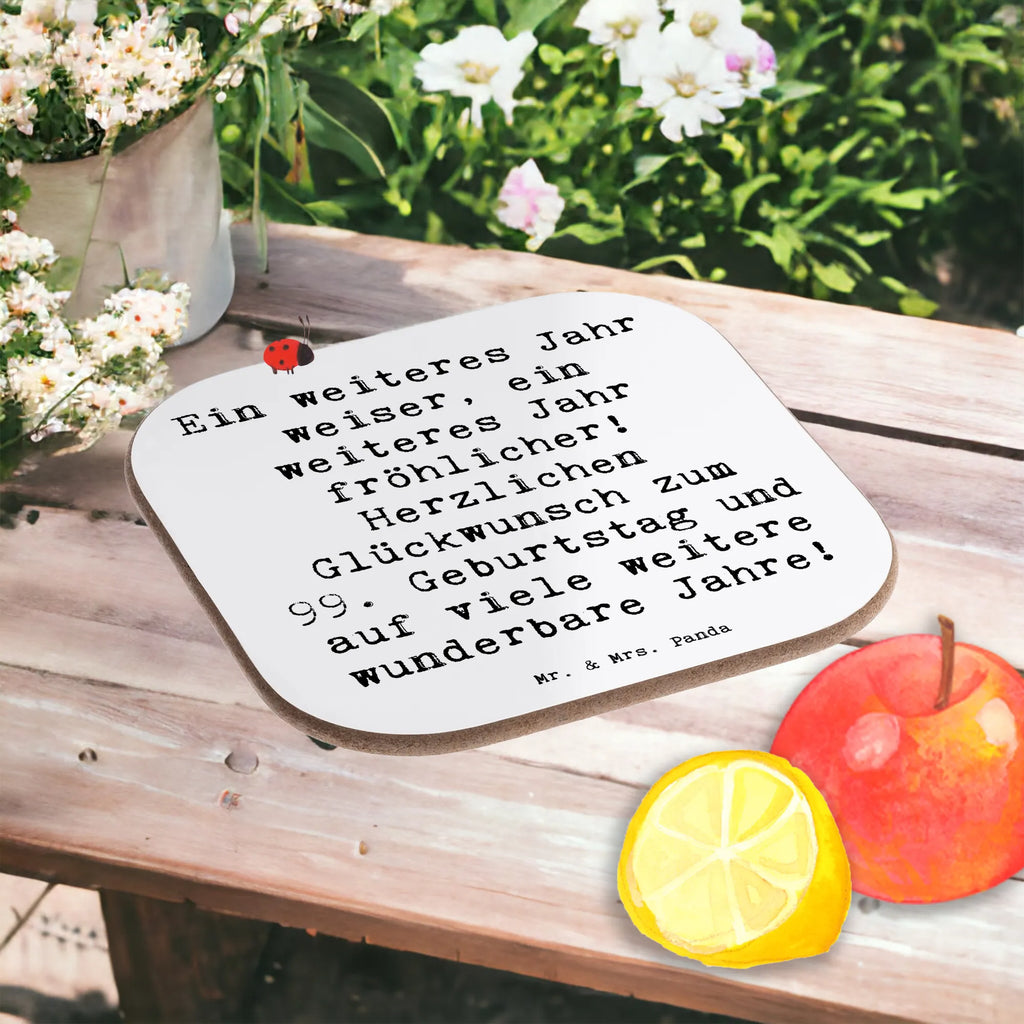 Ein weiteres Jahr
weiser, ein
weiteres Jahr
fröhlicher!
Herzlichen
Glückwunsch zum
99. Geburtstag und
auf viele weitere
wunderbare Jahre!
Mr. & Mrs. Panda